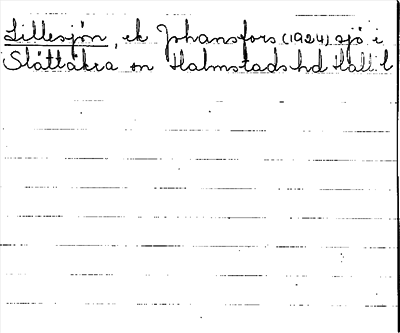 Lillesjön, ek Johansfors (1924) sjö i
Slättåkra sn Halmstads hd Hall l